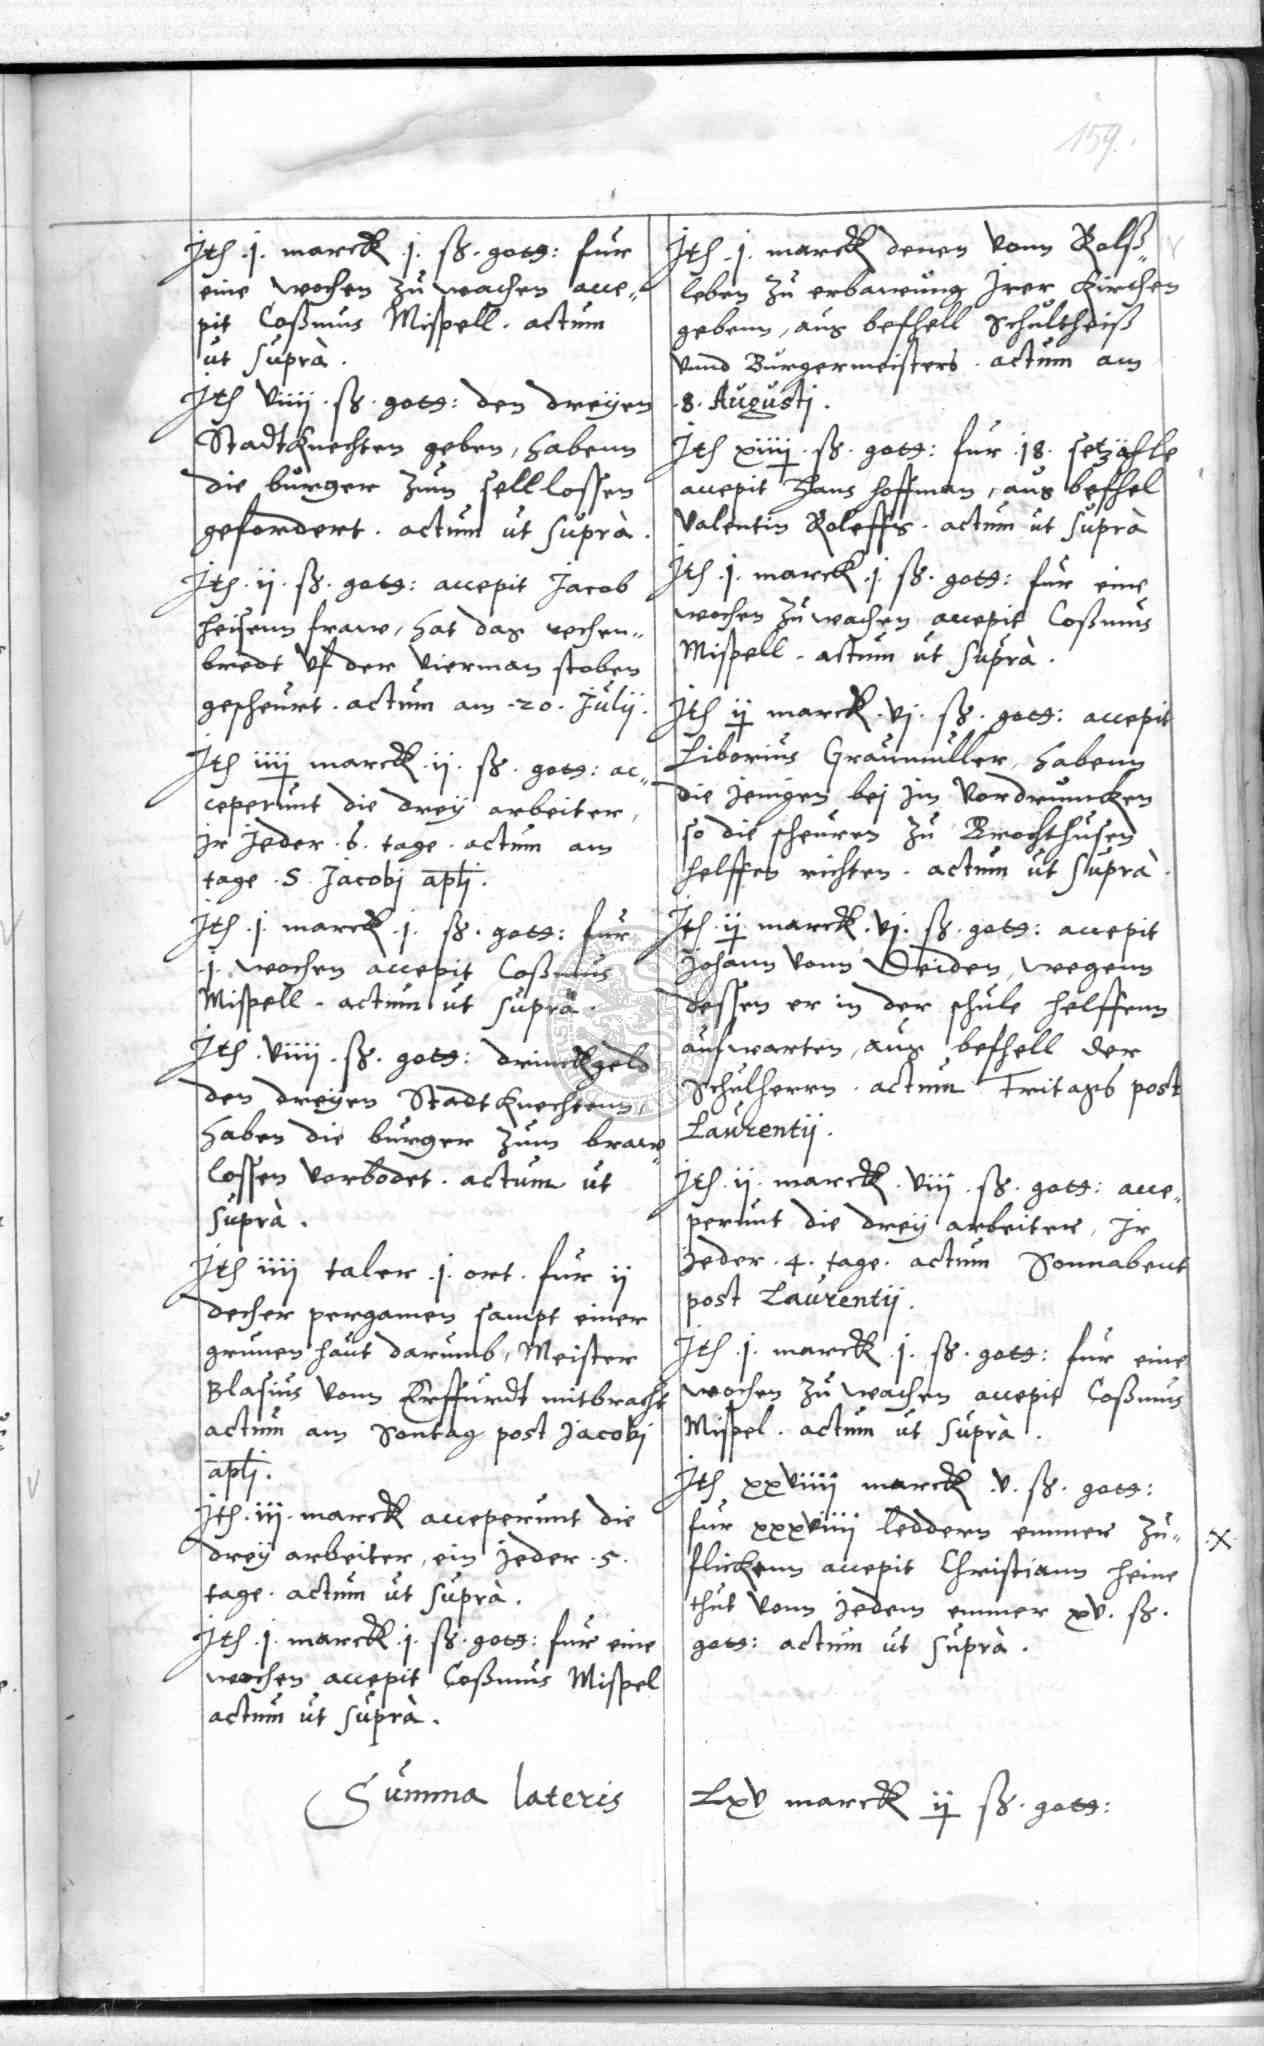 159.
Jtē .j. marck .j. ß. gotß: fur
eine wochen zu wachen acce„
pit Coßmus Mispell. actum
ut suprà.
Jtē viiij. ß. gotß: den dreyen
Stadtknechten geben, habenn
die burger zum selllossen
gefordert. actum ut suprà.
Jtē. ij. ß. gotß: accepit Jacob
heisenn fraw, hat das rechen„
bredt vf der vierman stoben
gescheurt. actum am .20. Julij.
Jtē iiij marck .ij. ß. gotß: ac„
ceperunt die drey arbeiter,
jr Jeder .6. tage. actum am
tage .S. Jacobj apli.
Jtē .j. marck .j. ß. gotß: fur
.j. wochen accepit Coßmus
Mispell. actum ut suprà.
Jtē. viiij. ß. gotß: drinckgeld
den dreyen Stadtknechtenn,
haben die burger zum braw„
lossen vorbodet. actum ut
suprà.
Jtē iiij taler .j. ort. fur ij
decher pergamen sampt einer
grunen haut darumb, Meister
Blasius vonn Erffurdt mitbracht
actum am Sontag post Jacobj
apli.
Jtē. iij. marck acceperunt die
drey arbeiter, ein jeder .5.
tage. actum ut suprà.
Jtē .j. marck .j. ß. gotß: fur eine
wochen accepit Coßmus Mispel
actum ut suprà.
Summa lateris
Jtē .j. marck denen vonn Rolß„
leben zu erbawung Jrer Kirchen
gebenn, aus befhell Schultheiß
vnnd Burgermeisters. actum am
.8. Augustj.
Jtē xiiij. ß. gotß: fur .18. setzpfle
accepit Hans hoffman, aus befhel
Valentin Roleffs. actum ut suprà
Jtē .j. marck .j. ß. gotß: fur eine
wochen zu wachen accepit Coßmus
Mispell. actum ut suprà.
Jtē ij marck .vj. ß. gotß: accepit
Liborius Graumuller, habenn
die jenigen bej jm vordruncken
so die scheuren zu
helffen richten. actum ut suprà.
Jtē. ij marck .vj. ß. gotß: accepit
Johann vonn Weiden, wegenn
dessen er in der schule helffenn
aufwarten, aus befhell der
Schulherrn. actum Fritags post
Laurentij.
Jtē. ij. marck .viij. ß. gotß: acce„
perunt die drey arbeiter, Jr
Jeder .4. tage. actum Sonnabent
post Laurentij.
Jtē .j. marck .j. ß. gotß: fur eine
wochen zu wachen accepit Coßmus
Mispel. actum ut suprà.
Jtē xxviiij marck .v. ß. gotß:
fur xxxviiij leddern emmer zu„
flickenn accepit Christiann heine
thut vonn jedem emmer xv. ß.
gotß: actum ut suprà.
Lxv marck ij ß. gotß: